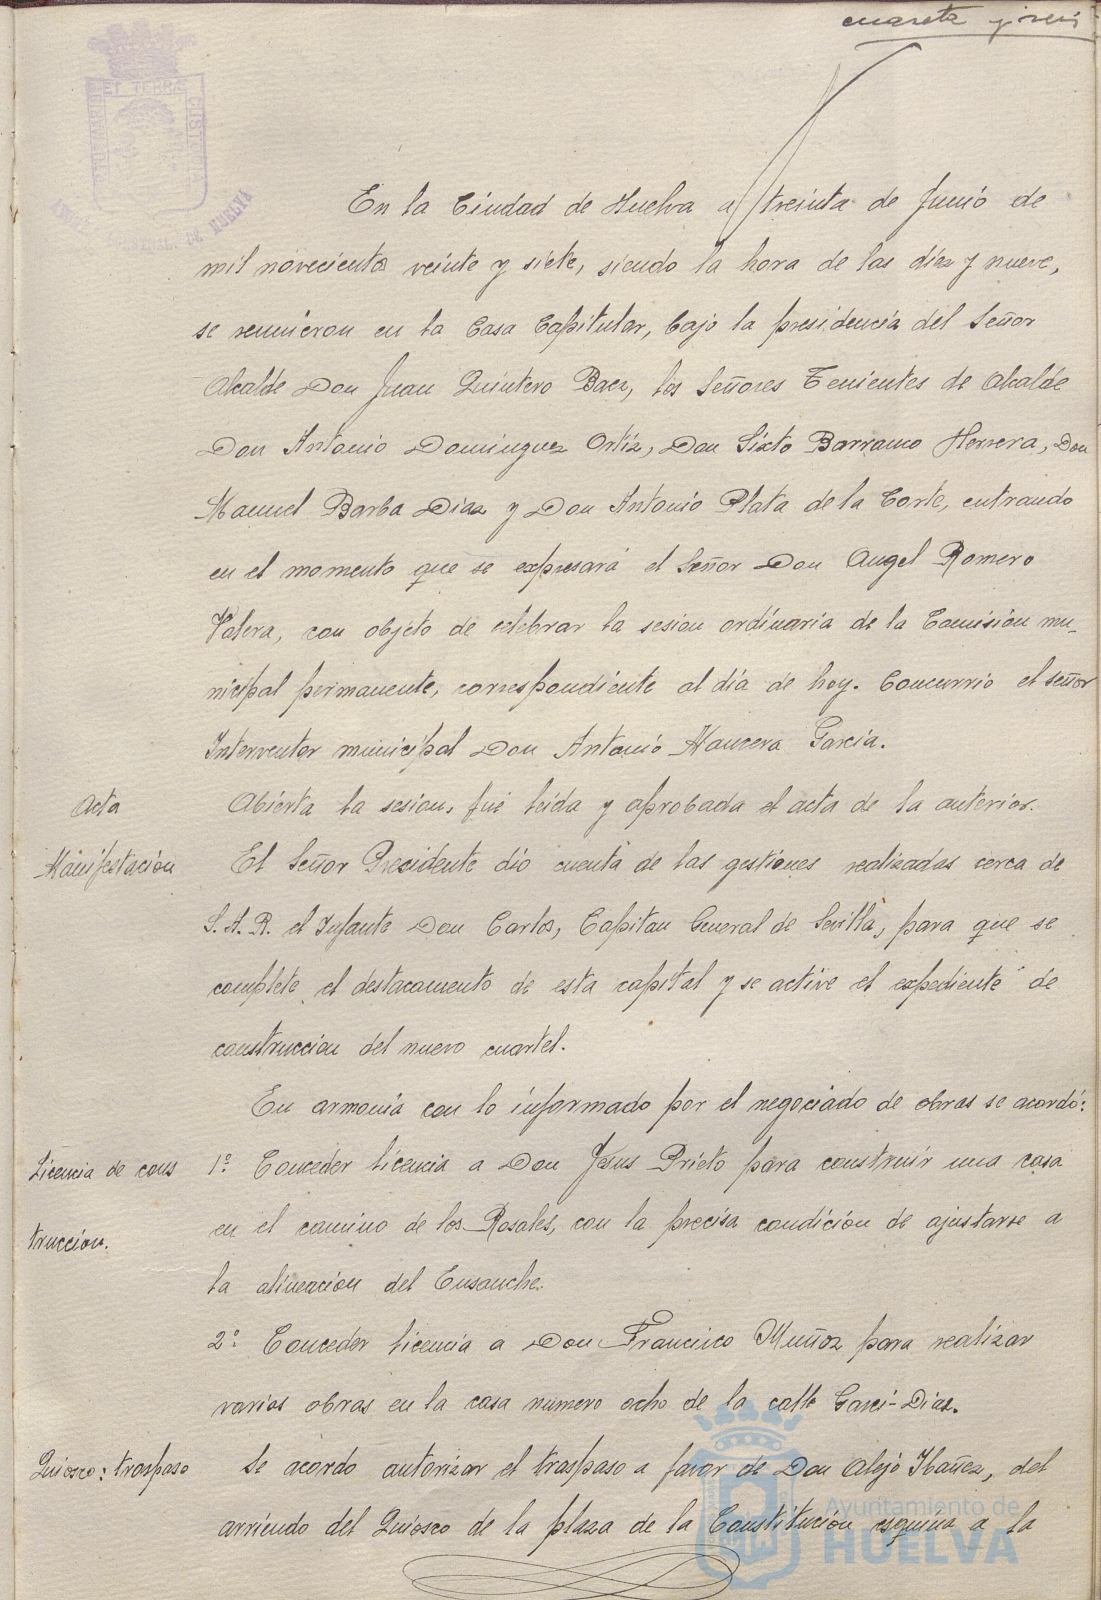 cuareta y seis
ET TERRÆ
CUSTODIA
HUELVA
En la Ciudad de Huelva a treinta de Junio de
mil novecientos veinte y siete, siendo la hora de las diez y nueve,
se reunieron en la Casa Capitular, bajo la presidencia del Señor
Alcalde Don Juan Quintero Baez, los Señores Tenientes de Alcalde
Don Antonio Dominguez Ortiz, Don Sixto Barranco Herrera, Don
Manuel Barba Diaz y Don Antonio Plata de la Corte, entrando
en el momento que se expresará el Señor Don Angel Romero
Valera, con objeto de celebrar la sesion ordinaria de la Comisión mu-
nicipal permanente, correspondiente al día de hoy. Concurrio el señor
Interventor municipal Don Antonio Mancera Garcia.
Acta
Abierta la sesion, fué leida y aprobada el acta de la anterior.
Manifestación
El Señor Presidente dio cuenta de las gestiones realizadas cerca de
S. A. R. el Infante Don Carlos, Capitan General de Sevilla, para que se
complete el destacamento de esta capital y se active el expediente de
construccion del nuevo cuartel.
En armonia con lo informado por el negociado de obras se acordó:
Licencia de cons
1º Conceder licencia a Don Jesus Prieto para construir una casa
en el camino de los Rosales, con la precisa condición de ajustarse a
truccion.
la alineacion del Ensanche.
2º Conceder licencia a Don Francisco Muñoz para realizar
varias obras en la casa numero ocho de la calle Garci-Diaz.
Quiosco: traspaso
Se acordo autorizar el traspaso a favor de Don Alejo Ibañez, del
arriendo del Quiosco de la plaza de la Constitución esquina a la
Ayuntamiento de
HUELVA